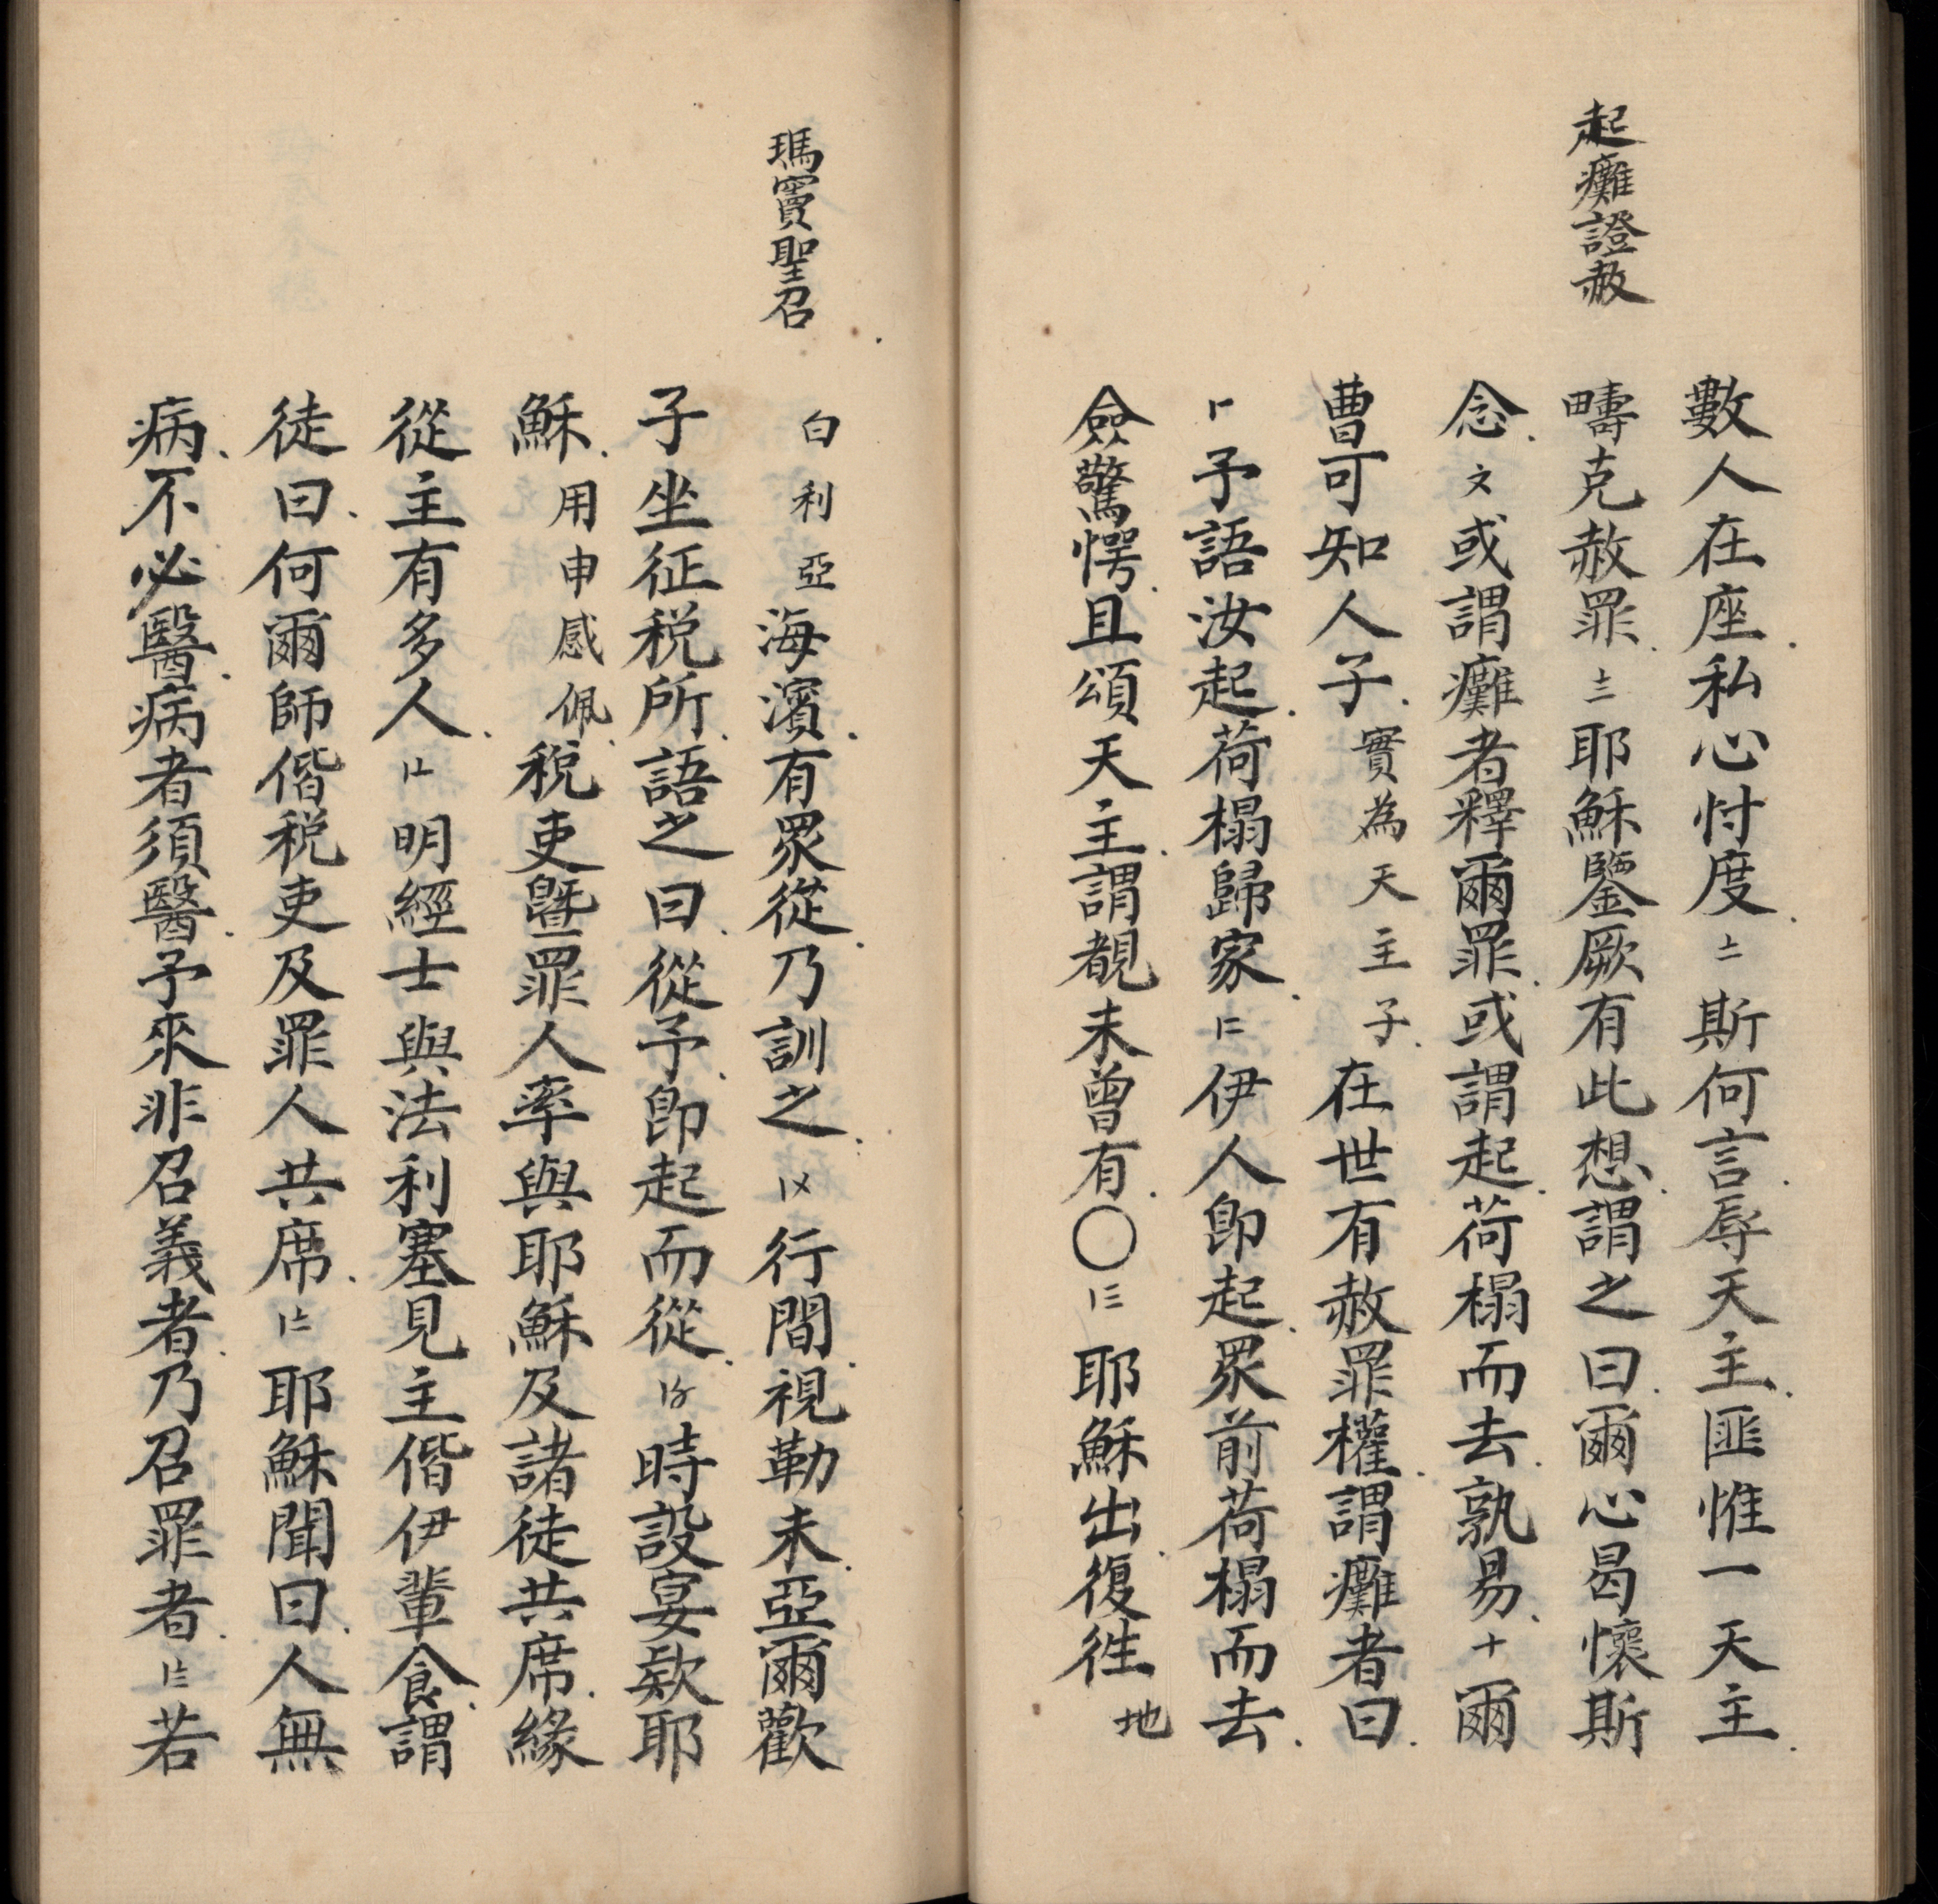 起癱證赦
數人在座私心忖度〦斯何言辱天主匪惟一天主
疇克赦罪〧耶穌鑒厥有此想謂之曰爾心曷懷斯
念〩或謂癱者釋爾罪或謂起荷榻而去孰易十爾
曹可知人子實為天主子在世有赦罪權謂癱者曰
〡予語汝起荷榻歸家〡二伊人即起眾前荷榻而去
僉驚愕且頌天主謂覩未曾有〇〡三耶穌出復徃地
瑪竇聖召
白利亞海濱有眾從乃訓之〡〤行間視勒未亞爾歡
子坐征税所語之曰從予即起而從〡〥時設宴欵耶
穌用申感佩税吏暨罪人率與耶穌及諸徒共席緣
從主有多人〡〦明經士與法利塞見主偕伊輩食謂
徒曰何爾師偕税吏及罪人共席〡〧耶穌聞曰人無
病不必醫病者須醫予來非召義者乃召罪者〡〨若